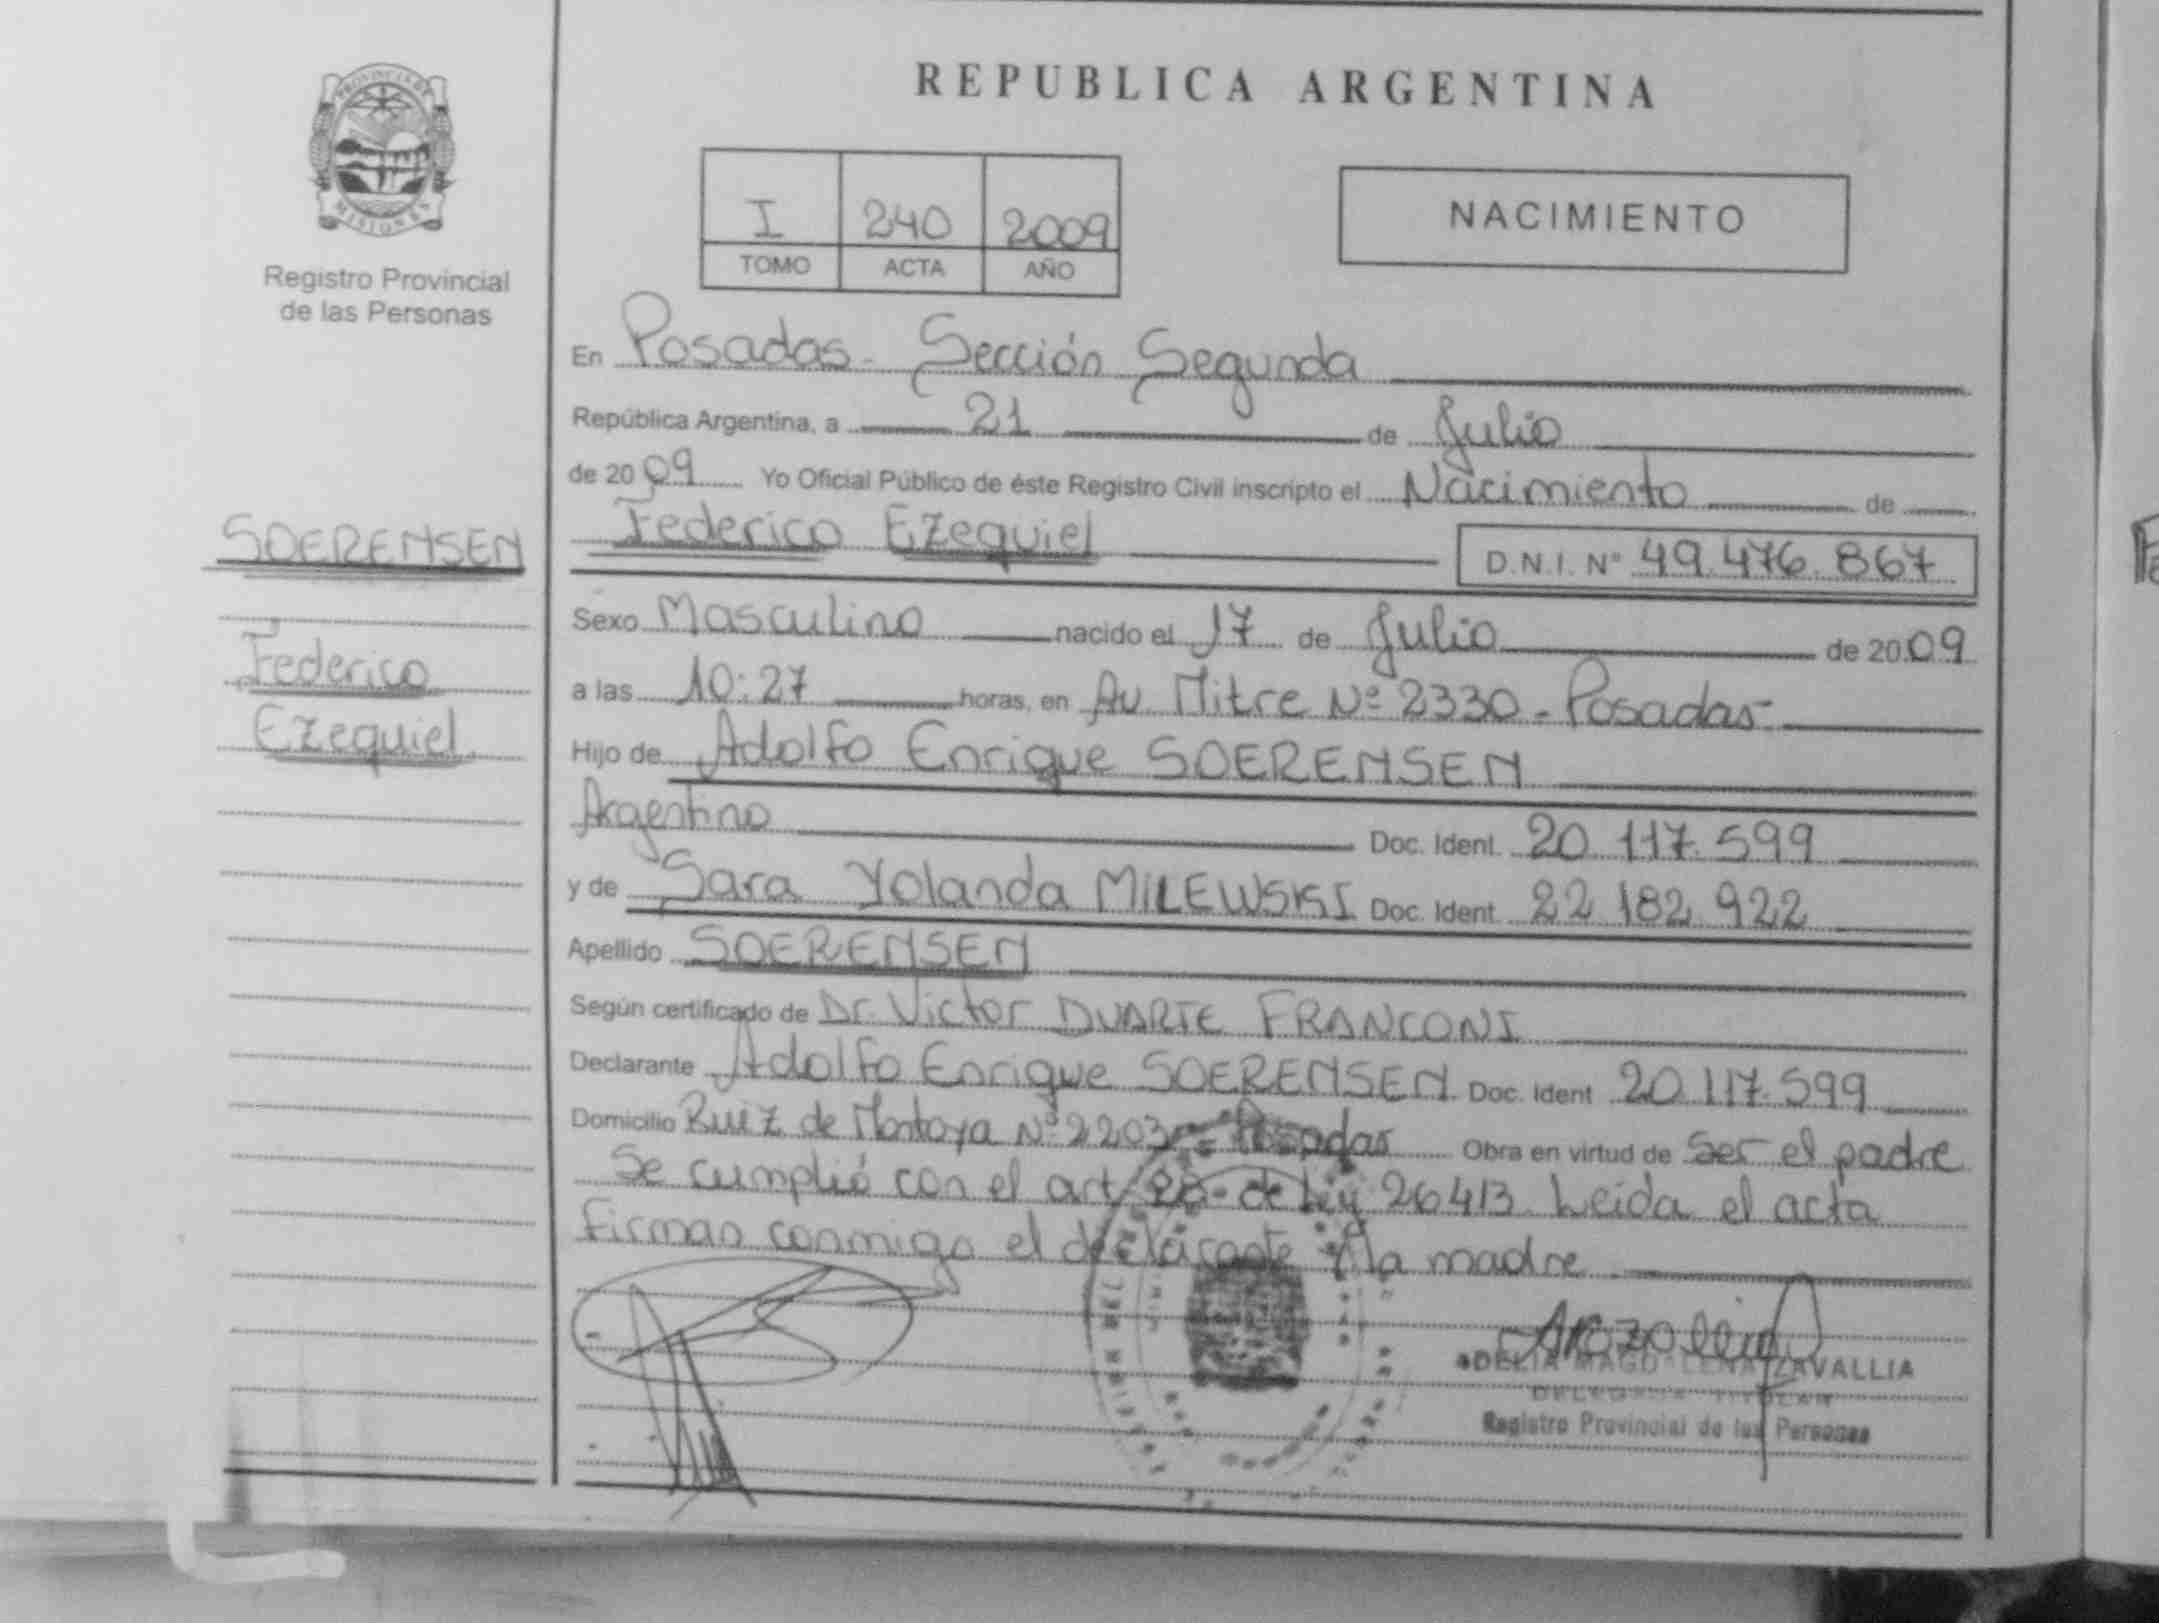 PROVINCIA DE
MISIONES
Registro Provincial
de las Personas
SOERENSEN
Federico
Ezequiel
REPUBLICA ARGENTINA
I 240 2009
TOMO ACTA AÑO
NACIMIENTO
En Posadas - Sección Segunda
República Argentina, a 21 de Julio
de 2009 Yo Oficial Público de éste Registro Civil inscripto el Nacimiento de
Federico Ezequiel D.N.I. Nº 49.476.867
Sexo Masculino nacido el 17 de Julio de 2009
a las 10:27 horas, en Av. Mitre Nº 2330 - Posadas -
Hijo de Adolfo Enrique SOERENSEN
Argentino Doc. Ident. 20.117.599
y de Sara Yolanda MILEWSKI Doc. Ident. 22.182.922
Apellido SOERENSEN
Según certificado de Dr. Victor DUARTE FRANCONI
Declarante Adolfo Enrique SOERENSEN Doc. Ident 20.117.599
Domicilio Ruiz de Montoya Nº 2203 - Posadas Obra en virtud de Ser el padre
Se cumplió con el art. de Ley 26413. Leida el acta
firman conmigo el declarante y la madre
DELIA MAGDALENA ZAVALLIA
DELEGADA TITULAR
Registro Provincial de las Personas